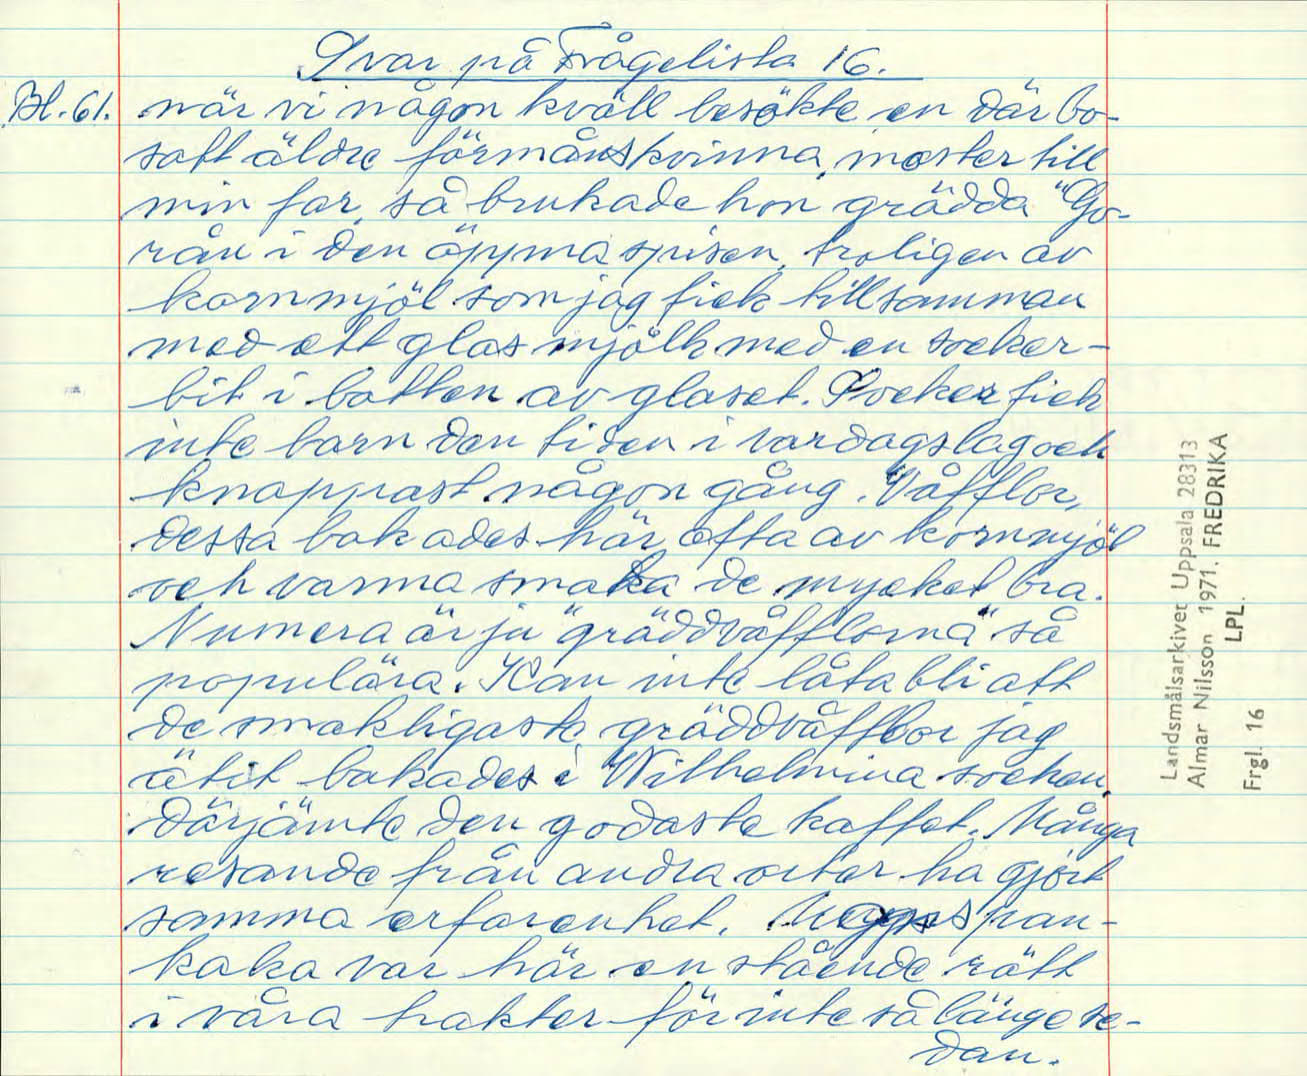 Svar på Frågelista 16.
Bl. 61. när vi någon kväll besökte en där bo-
satt äldre förmånskvinna, moster till
min far, så brukade hon grädda "Go-
rån i den öppna spisen, troligen av
kornmjöl som jag fick tillsamman
med ett glas mjölk med en socker-
bit i botten av glaset. Socker fick
inte barn den tiden i vardagslag och
knappast någon gång. Våfflor,
dessa bakades här ofta av kornmjöl
och varma smaka de mycket bra.
Numera är ju "gräddvåfflorna" så
populära. Kan inte låta bli att
de smakligaste gräddvåfflor jag
ätit bakades i Wilhelmina socken,
därjämte den godaste kaffet. Många
resande från andra orter ha gjort
samma erfarenhet. pan-
kaka var här en stående rätt
i våra trakter för inte så länge se-
dan.
Landsmålsarkivet Uppsala 28313
Almar Nilsson 1971. FREDRIKA
LPL.
Frgl. 16